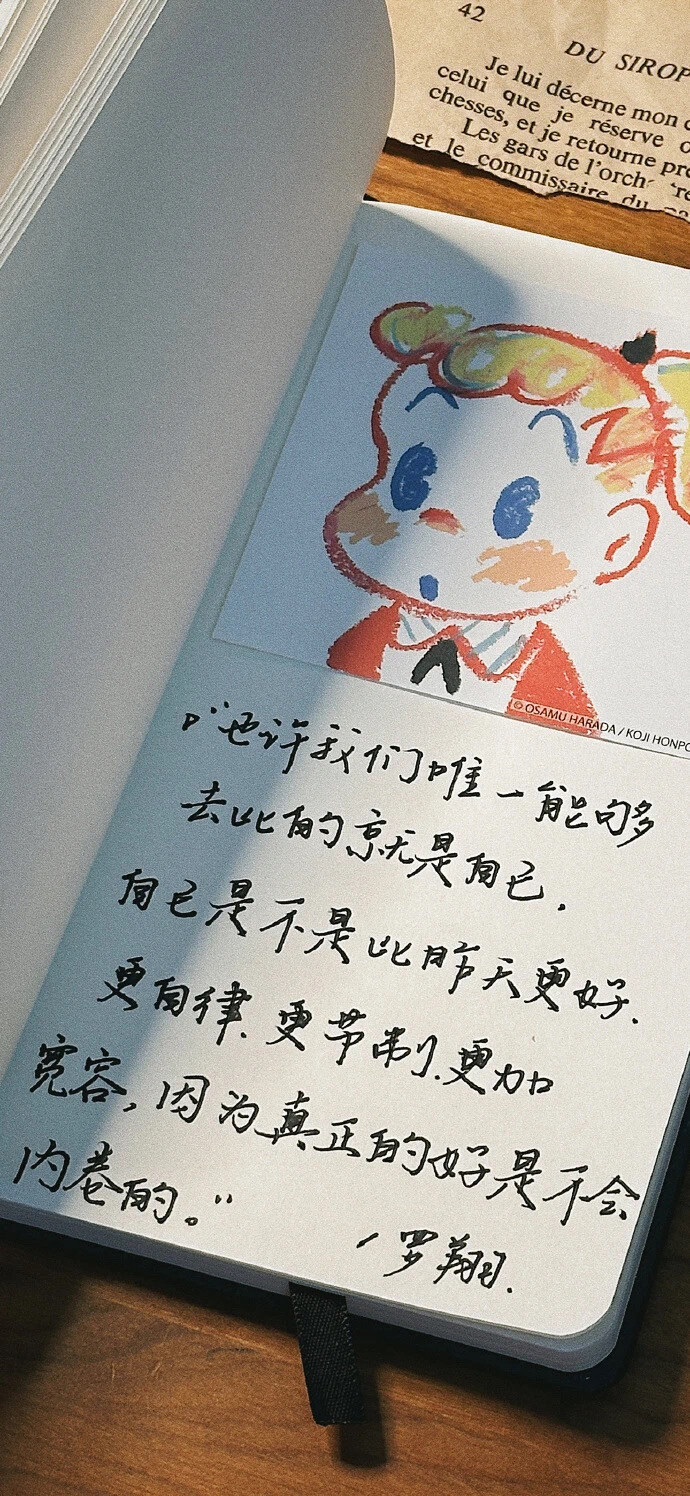 42
DU SIROP
Je lui décerne mon
celui que je réserve
chesses, et je retourne
Les gars de l'orch
et le commissaire du
© OSAMU HARADA / KOJI HONPO
"也许我们唯一能够
去比的就是自己.
自己是不是比昨天更好.
更自律.更节制.更加
宽容,因为真正的好是不会
内卷的。"
/罗翔.